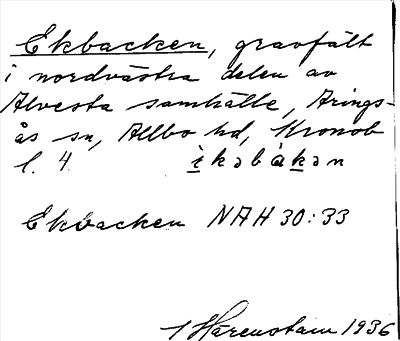 Ekbacken, gravfält
i nordvästra delen av
Alvesta samhälle, Arings-
ås sn, Allbo hd, Kronob
l. 4 ìkəbákən
Ekbacken NAH 30:33
Härenstam 1936